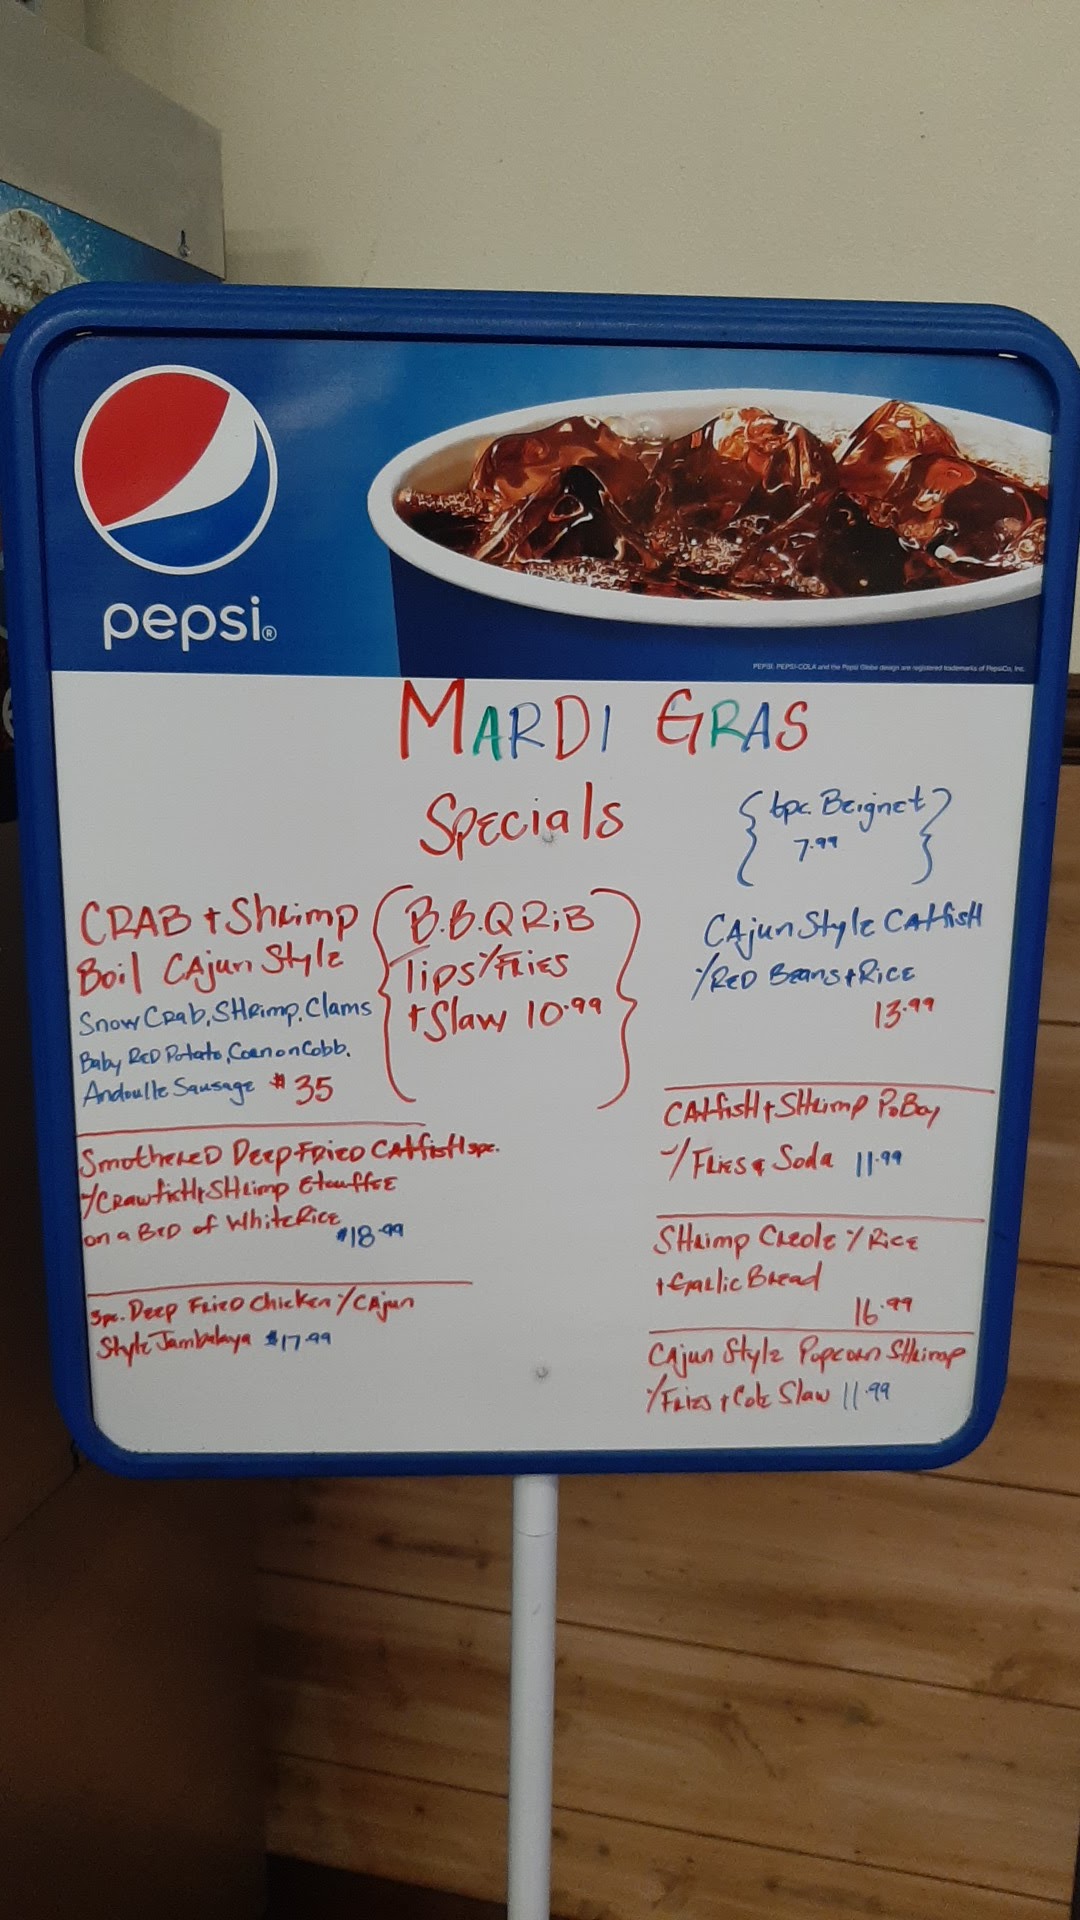 pepsi®
PEPSI, PEPSI-COLA and the Pepsi Globe design are registered trademarks of PepsiCo, Inc.
MARDI GRAS
Specials
{ 6pc. Beignet }
7.99
CRAB + Shrimp
Boil CAjun Style
Snow Crab, SHrimp, Clams
Baby RED Potato, Corn on Cobb.
Andoulle Sausage $35
B.B.Q RiB
Tips w/ FRies
+ Slaw 10.99
CAjun Style CAtfisH
w/ RED Beans + Rice
13.99
SmotheRED Deep FRiED CAtfisH
w/ CRawfisH + SHrimp Etouffee
on a BED of White Rice
$18.99
3pc. Deep FRiED Chicken w/ CAjun
Style Jambalaya $17.99
CAtfisH + SHrimp PoBoy
w/ FRies & Soda 11.99
SHrimp Creole w/ Rice
+ Garlic Bread
16.99
CAjun Style Popcorn SHrimp
w/ FRies + Cole Slaw 11.99